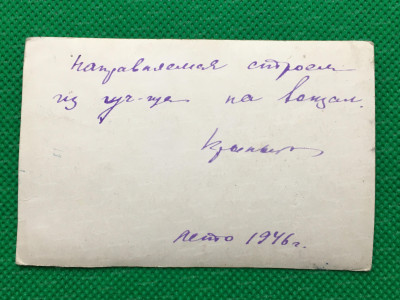 Направляемся строем
из уч-ща на вокзал.
лето 1946 г.